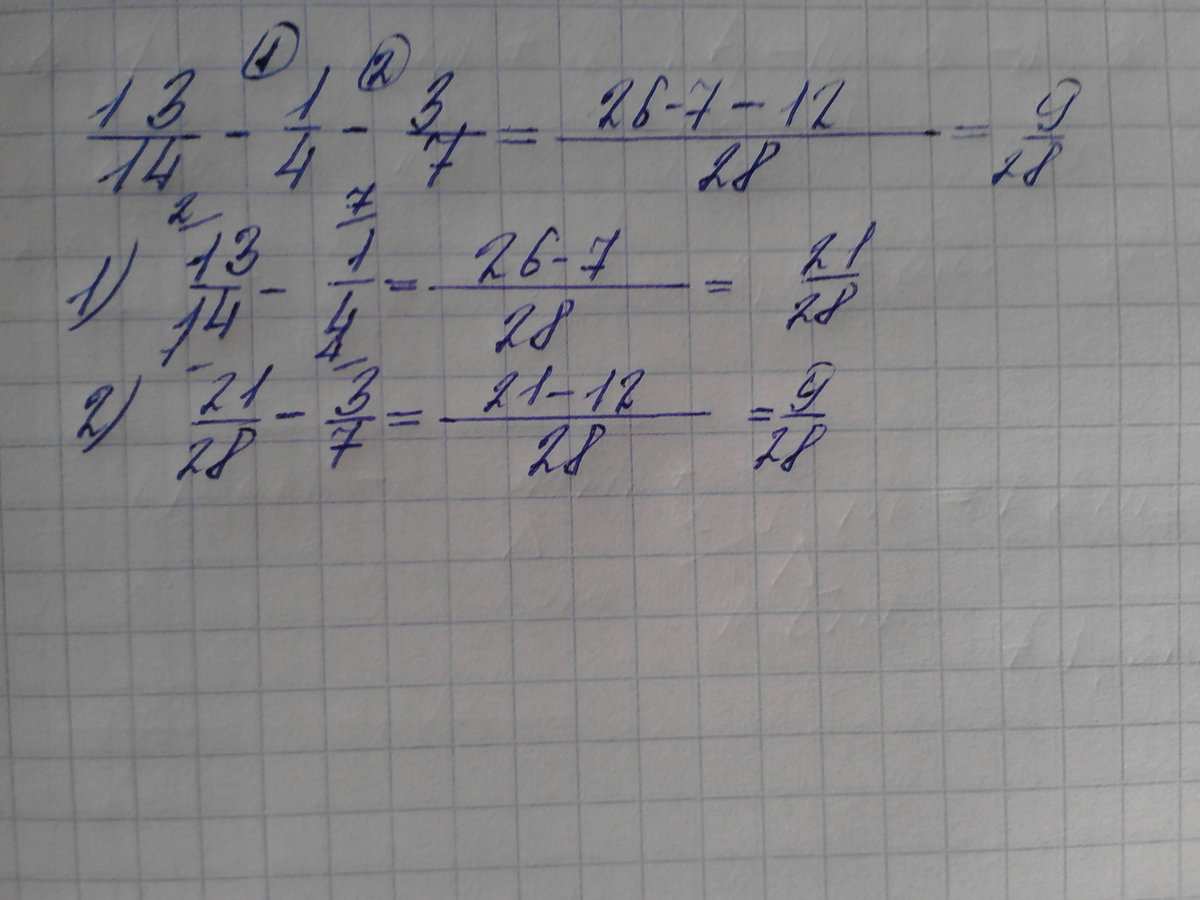 ① ②
13/14 - 1/4 - 3/7 = 26-7-12/28 = 9/28
2 7
1) 13/14 - 1/4 = 26-7/28 = 21/28
4
2) 21/28 - 3/7 = 21-12/28 = 9/28